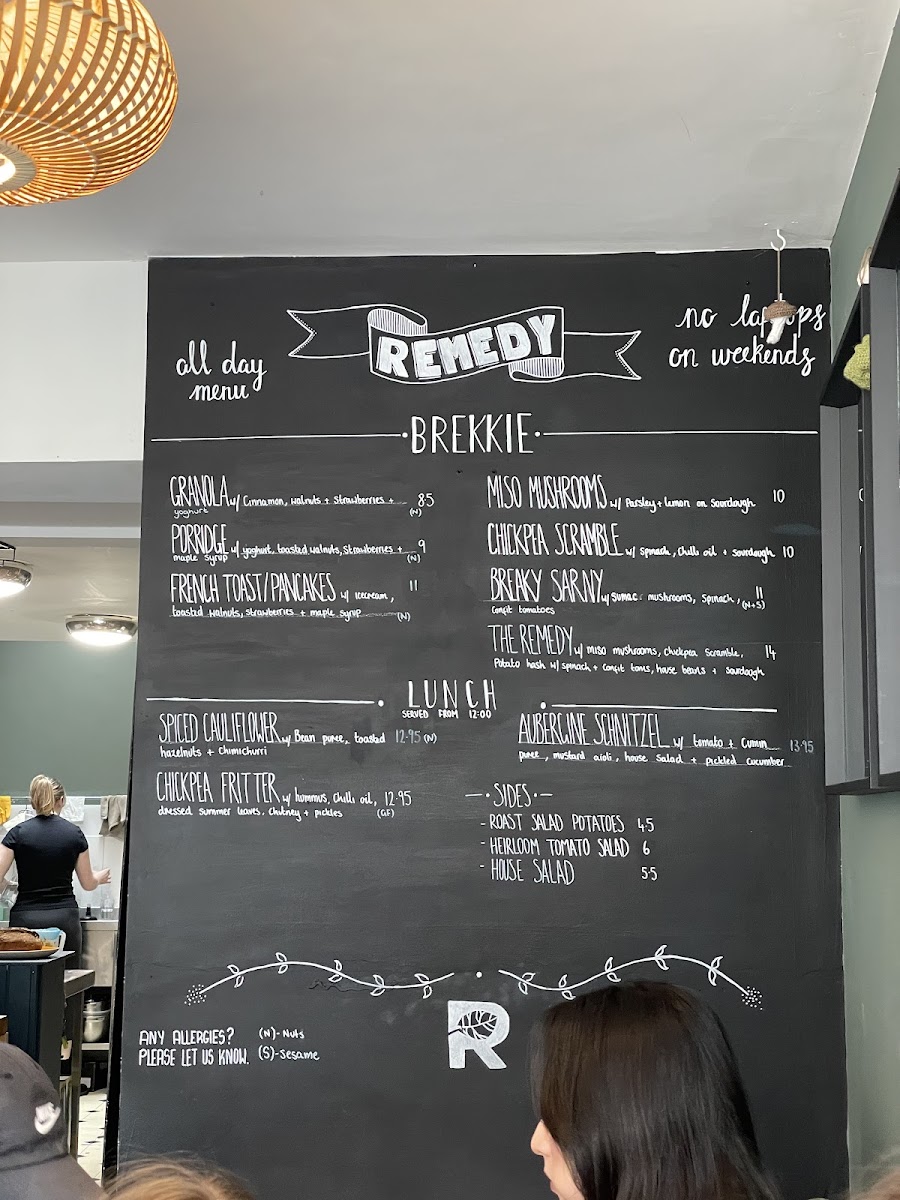 all day
menu
REMEDY
no laptops
on weekends
BREKKIE
GRANOLA w/ Cinnamon, walnuts + strawberries + 8.5
yoghurt (N)
PORRIDGE w/ yoghurt, toasted walnuts, strawberries + 9
maple syrup (N)
FRENCH TOAST/PANCAKES w/ icecream, 11
toasted walnuts, strawberries + maple syrup (N)
MISO MUSHROOMS w/ Parsley + lemon on sourdough 10
CHICKPEA SCRAMBLE w/ spinach, chilli oil + sourdough 10
BREAKY SARNY w/ sumac mushrooms, spinach, 11
confit tomatoes (N+S)
THE REMEDY w/ miso mushrooms, chickpea scramble, 14
Potato hash w/ spinach + confit toms, house beans + sourdough
LUNCH
SERVED FROM 12:00
SPICED CAULIFLOWER w/ Bean puree, toasted 12.95 (N)
hazelnuts + chimichurri
CHICKPEA FRITTER w/ hummus, chilli oil, 12.95
dressed summer leaves, chutney + pickles (GF)
AUBERGINE SCHNITZEL w/ tomato + cumin 13.95
puree, mustard aioli, house salad + pickled cucumber
SIDES
- ROAST SALAD POTATOES 4.5
- HEIRLOOM TOMATO SALAD 6
- HOUSE SALAD 5.5
R
ANY ALLERGIES? (N)- Nuts
PLEASE LET US KNOW. (S)- Sesame